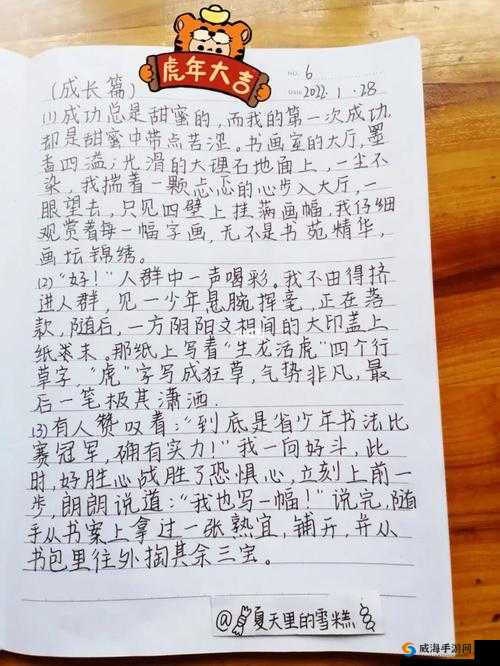 虎年大吉
NO. 6
DATE 2022.1.28
(成长篇)
(1)成功总是甜蜜的,而我的第一次成功,
却是甜蜜中带点苦涩。书画室的大厅,墨
香四溢;光滑的大理石地面上,一尘不
染,我揣着一颗忐忑的心步入大厅,一
眼望去,只见四壁上挂满画幅,我仔细
观赏着每一幅字画,无不是书苑精华,
画坛锦绣。
(2)“好!”人群中一声喝彩。我不由得挤
进人群,见一少年悬腕挥毫,正在落
款,随后,一方阴阳文相间的大印盖上
纸末。那纸上写着“生龙活虎”四个行
草字,“虎”字写成狂草,气势非凡,最
后一笔极其潇洒.
(3)有人赞叹着:“到底是省少年书法比
赛冠军,确有实力!”我一向好斗,此
时,好胜心战胜了恐惧心,立刻上前一
步,朗朗说道:“我也写一幅!”说完,随
手从书案上拿过一张熟宣,铺开,并从
书包里往外掏其余三宝。
@夏天里的雪糕
威海手游网